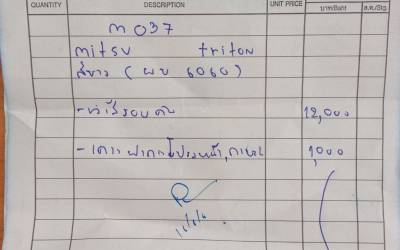 QUANTITY DESCRIPTION UNIT PRICE บาท/Baht ส.ต./Stg.
m 037
mitsu triton
สีขาว ( ผบ 6060 )
- ทำสีรอบคัน 12,000
- เคาะฝากระโปรงหน้า, 1,000